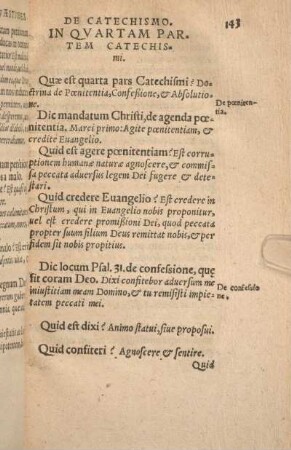 DE CATECHISMO. 143
IN QVARTAM PAR-
TEM CATECHIS-
mi.
Quæ est quarta pars Catechismi? Do-
ctrina de Pœnitentia, Confessione, & Absolutio-
ne.
De pœniten-
tia.
Dic mandatum Christi, de agenda pœ-
nitentia. Marci primo: Agite pœnitentiam, &
credite Euangelio.
Quid est agere pœnitentiam? Est corru-
ptionem humanæ naturæ agnoscere, & commis-
sa peccata aduersus legem Dei fugere & dete-
stari.
Quid credere Euangelio? Est credere in
Christum, qui in Euangelio nobis proponitur,
uel est credere promissioni Dei, quod peccata
propter suum filium Deus remittat nobis, & per
fidem sit nobis propitius.
Dic locum Psal. 31. de confessione, quæ
fit coram Deo. Dixi confitebor aduersum me
De confessio
ne.
iniustitiam meam Domino, & tu remisisti impie-
tatem peccati mei.
Quid est dixi? Animo statui, siue proposui.
Quid confiteri? Agnoscere & sentire.
Quid